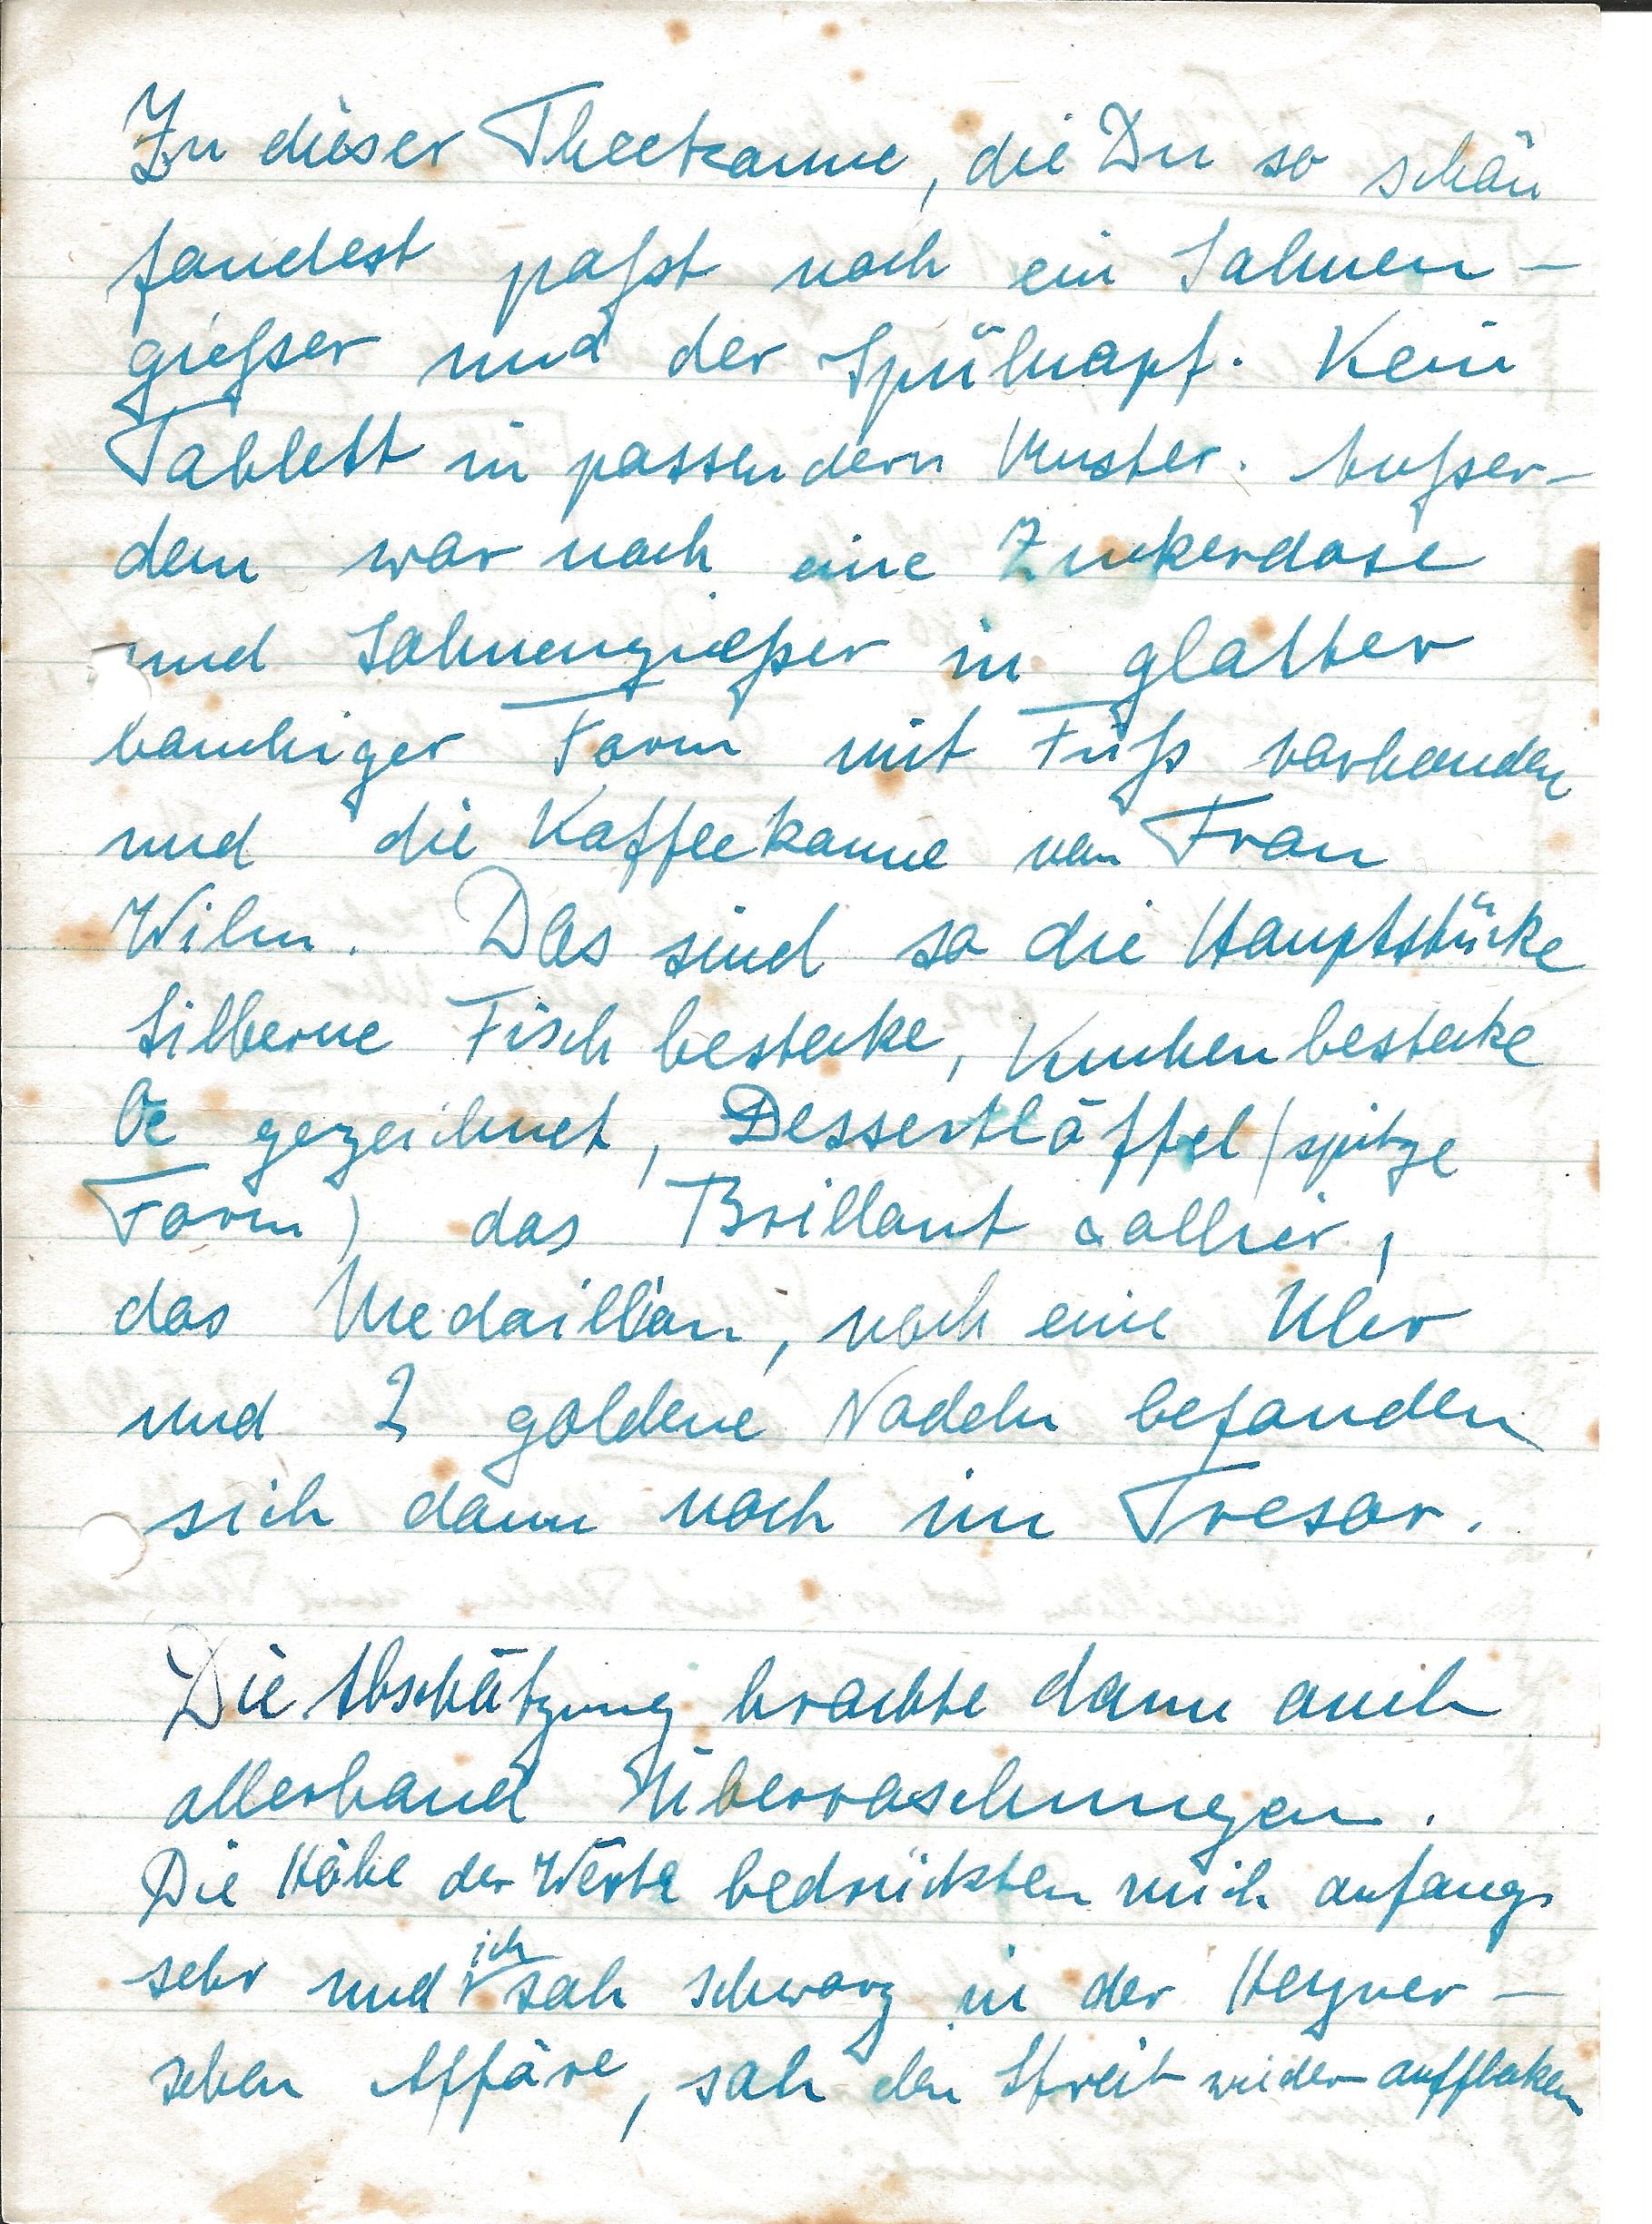 Zu dieser Theekanne, die Du so schön
fandest paßt noch ein Sahnen-
gießer und der Spülnapf. Kein
Tablett in passendem Muster. Außer-
dem war noch eine Zuckerdose
und Sahnengießer in glatter
bauchiger Form mit Fuß vorhanden
und die Kaffeekanne von Frau
Wilm. Das sind so die Hauptstücke
Silberne Fischbestecke, Kuchenbestecke
Oe gezeichnet, Dessertlöffel (spitze
Form) das Brillant collier,
das Medaillon, noch eine Uhr
und 2 goldene Nadeln befanden
sich dann noch im Tresor.
Die Abschätzung brachte dann auch
allerhand Überraschungen.
Die Höhe der Werte bedrückten mich anfangs
sehr und ich sah schwarz in der Heyner-
schen Affäre, sah den Streit wieder aufflackern